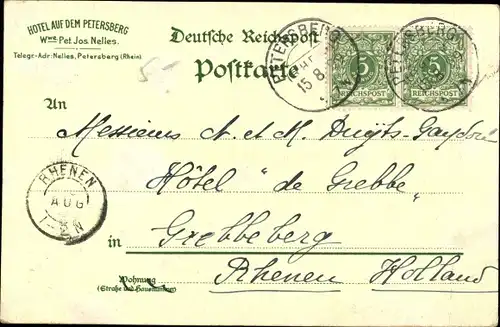 HOTEL AUF DEM PETERSBERG
Wwe Pet. Jos. Nelles.
Telegr.-Adr: Nelles, Petersberg (Rhein)
Deutsche Reichspost
Postkarte
PETERSBERG
15.8
PETERSBERG
5
REICHSPOST
5
REICHSPOST
5-
An
Messieurs A. et M. Duijts-
Hôtel "de Grebbe"
RHENEN
AUG
1-2N
in
Grebbeberg
Rhenen Holland
Wohnung
(Straße und Hausnummer)